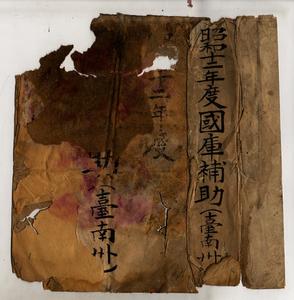 昭和十二年度國庫補助(臺南州)
十二年度
(臺南州)